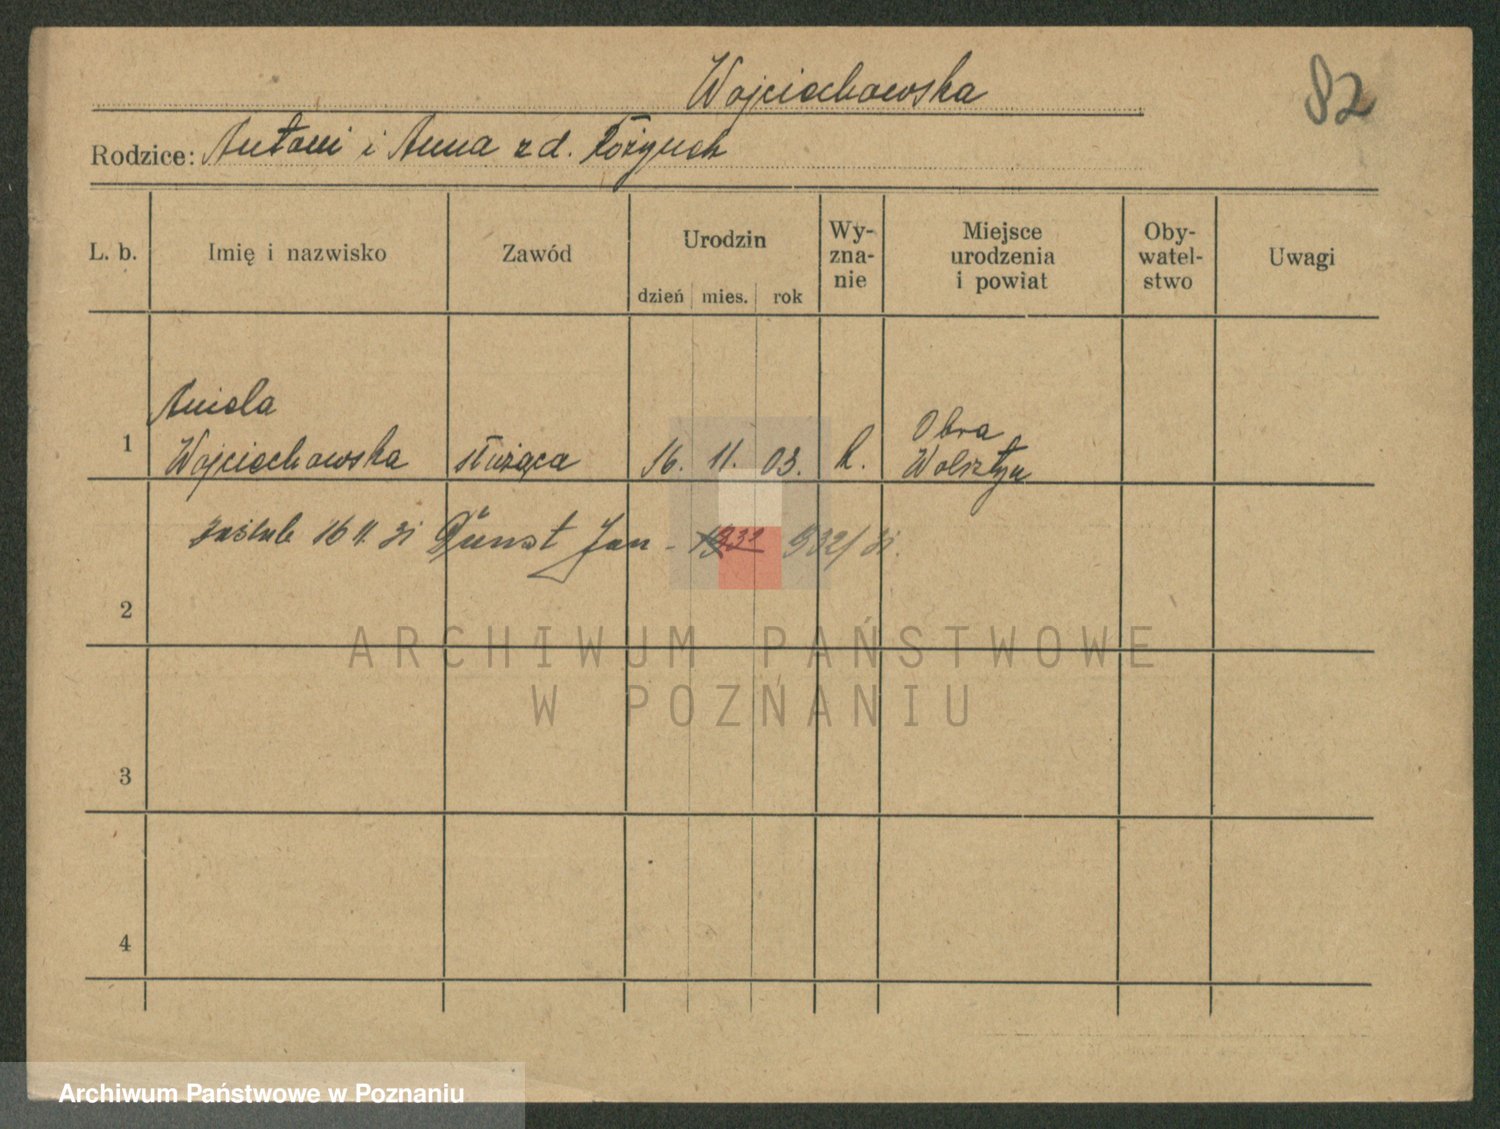 Wojciechowska
82
Rodzice: Antoni i Anna z d. Łożynek
L. b.
Imię i nazwisko
Zawód
Urodzin
dzień mies. rok
Wy-
zna-
nie
Miejsce
urodzenia
i powiat
Oby-
watel-
stwo
Uwagi
1
Aniela
Wojciechowska
służąca
16. 11. 03.
k.
Obra
Wolsztyn
2
zaślub 16 11. 31 Dünst Jan - 932/31.
ARCHIWUM PAŃSTWOWE
W POZNANIU
3
4
Archiwum Państwowe w Poznaniu